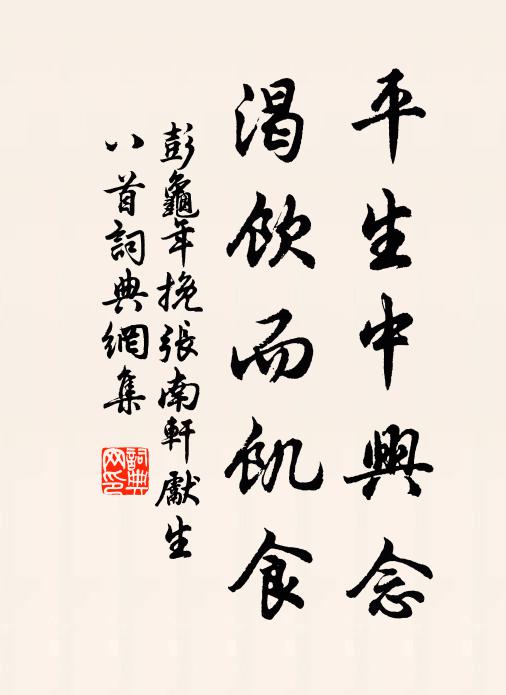 平生中興念
渴飲而飢食
彭龜年挽張南軒獻生
八首詞典網集
詞典
网印